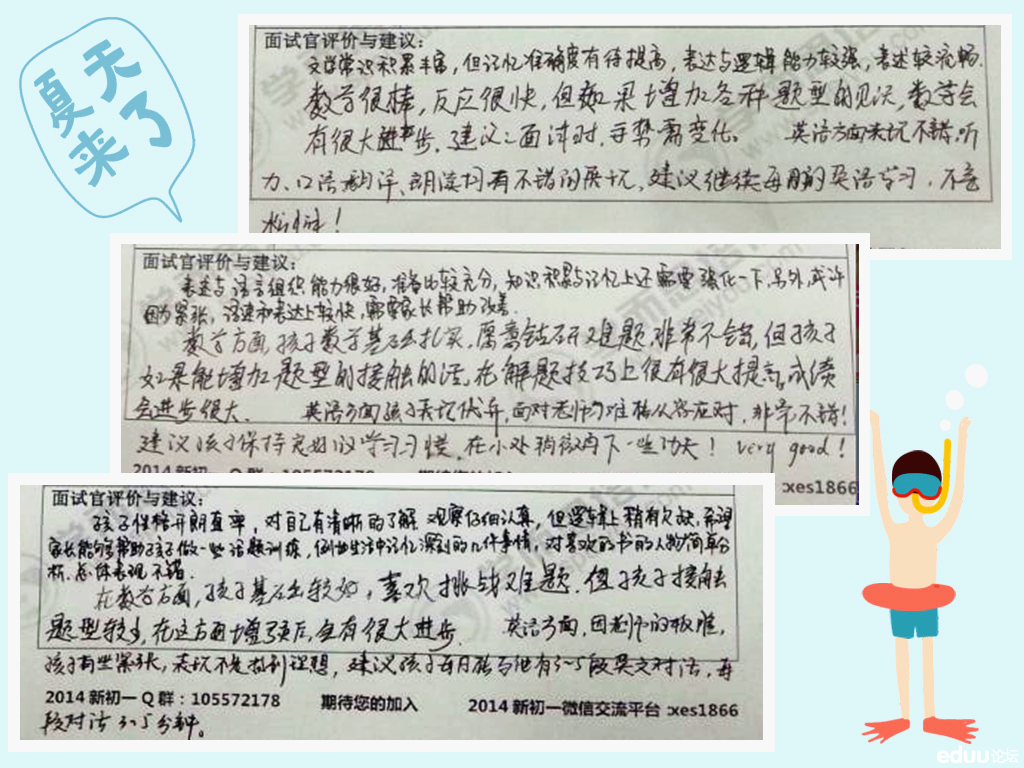 夏天
来了
面试官评价与建议：
文学常识积累丰富，但记忆准确度有待提高，表达与逻辑能力较强，表述较流畅.
数学很棒，反应很快，但如果增加各种题型的见识，数学会
有很大进步，建议：面试时，手势需变化。 英语方面表现不错，听
力、口语翻译、朗读均有不错的展现，建议继续每周的英语学习，不
面试官评价与建议：
表达与语言组织能力很好，准备比较充分，知识积累与记忆上还需要强化一下，另外，或许
因为紧张，语速和表达上较快，需要家长帮助改善.
数学方面，孩子数学基础扎实，愿意钻研难题，非常不错，但孩子
如果能增加题型的接触的话，在解题技巧上很有很大提高，成绩
会进步很大. 英语方面孩子表现优异，面对老师刁难能从容应对，非常不错！
建议孩子保持良好的学习习惯，在小处稍微再下一些功夫！ very good！
2014新初一Q群：105572178
:xes1866
面试官评价与建议：
孩子性格开朗直率，对自己有清晰的了解，观察仔细认真，但逻辑上稍有欠缺，希望
家长能够帮助孩子做一些话题训练，例如生活中记忆深刻的几件事情，对喜欢的书的人物简单分
析，总体表现不错.
在数学方面，孩子基础较好，喜欢挑战难题，但孩子接触
题型较少，在这方面增强后，会有很大进步. 英语方面，因老师的故难，
孩子有些紧张，表现不是特别理想，建议孩子每日能与他有3~5段英文对话，每
段对话3~5分钟。
2014新初一Q群：105572178 期待您的加入 2014新初一微信交流平台：xes1866
eduu论坛